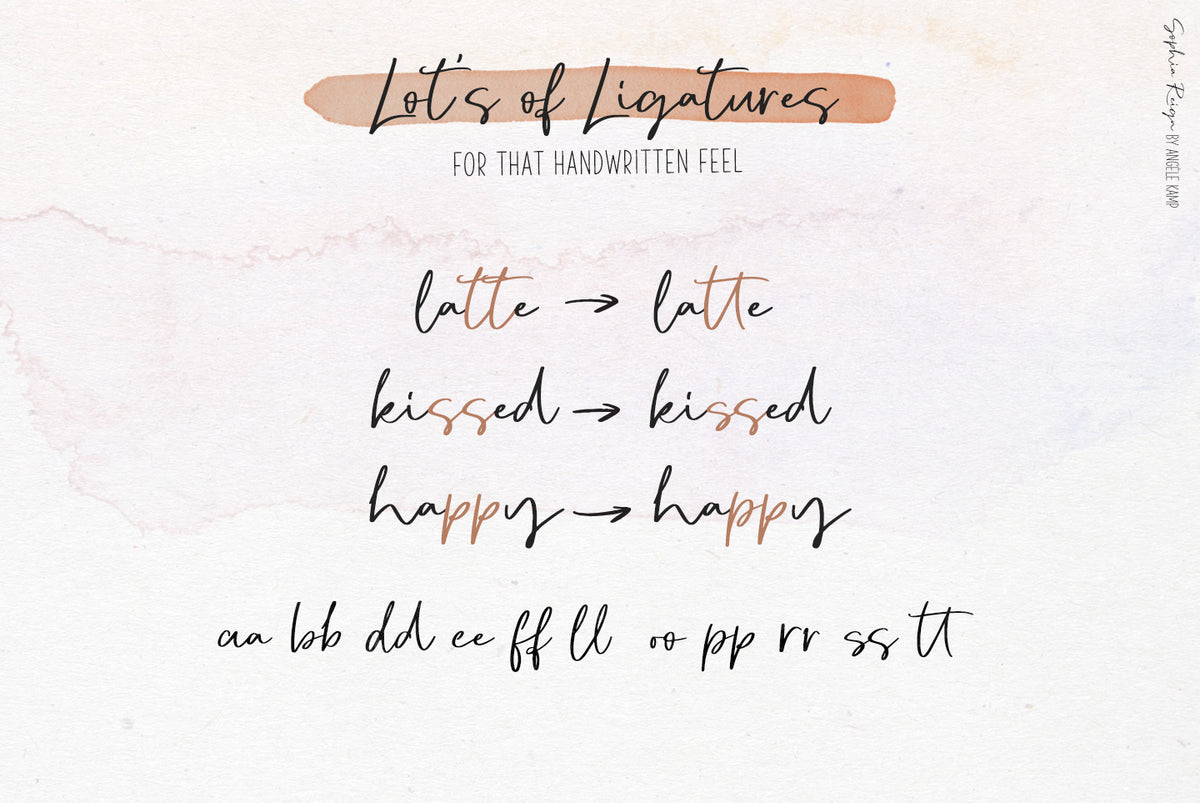 Lot's of Ligatures
FOR THAT HANDWRITTEN FEEL
latte → latte
kissed → kissed
happy → happy
aa bb dd ee ff ll oo pp rr ss tt
Sophia Reign BY ANGELE KAMP